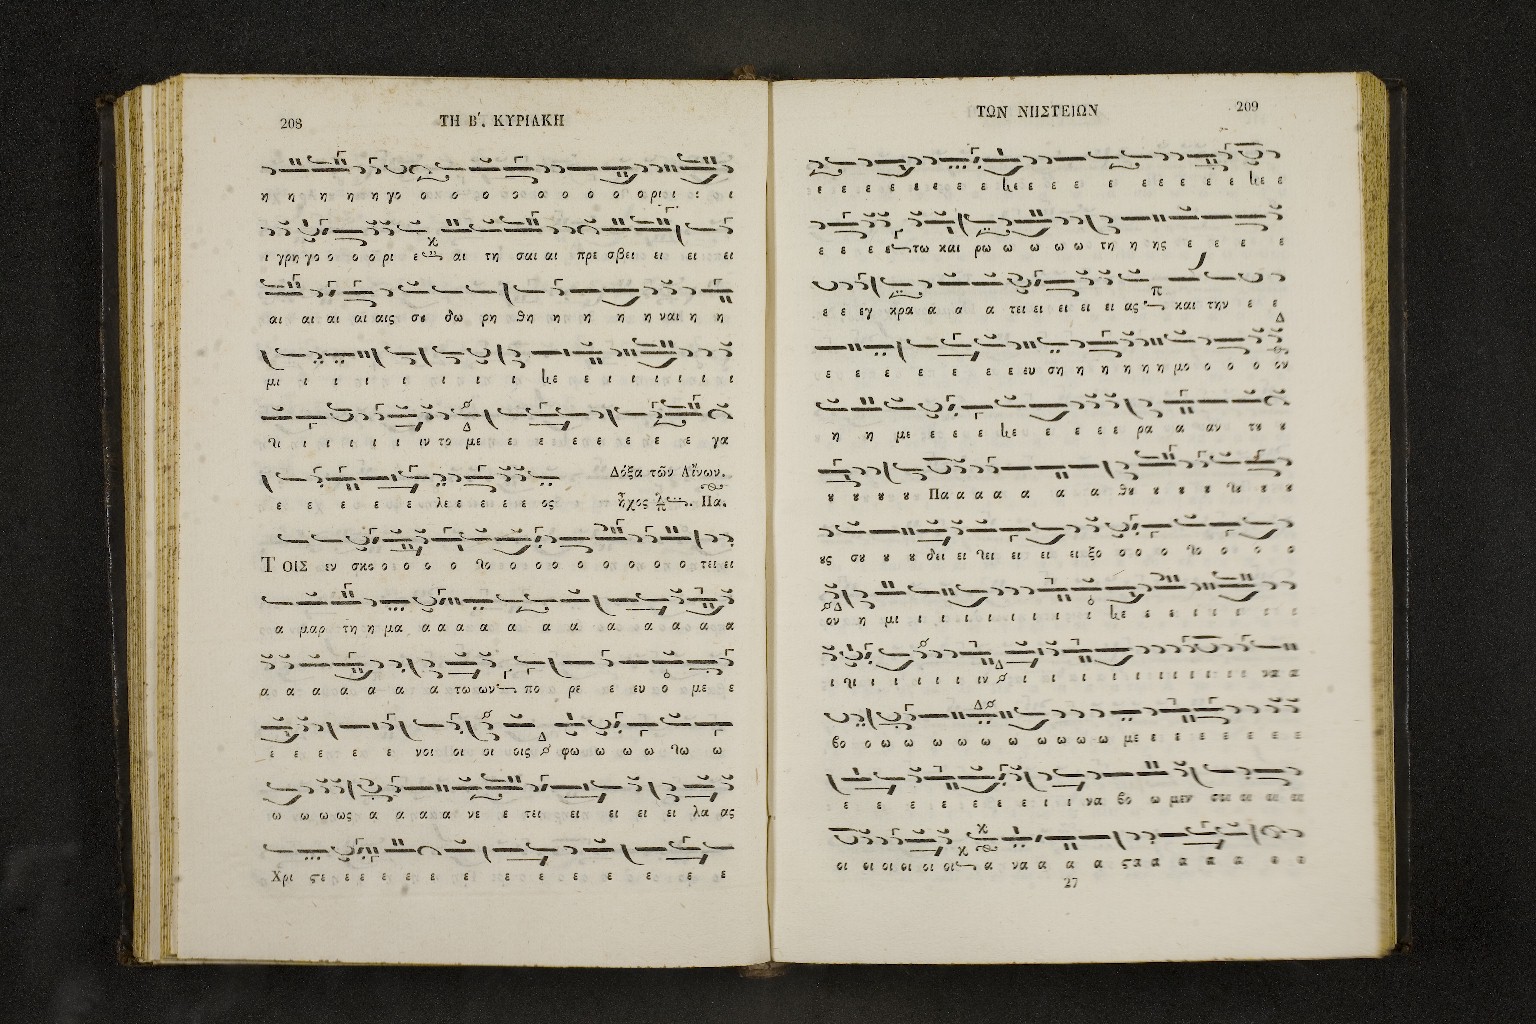 208
ΤΗ Β΄. ΚΥΡΙΑΚΗ
η η η η η γο ο ο ο ο ο ο ο ο ο ο ρι ι ι ι
ι γρη γο ο ο ο ρι ε αι τη σαι αι πρε σβει ει ει ει
αι αι αι αι αις σε δω ρη θη η η η η ναι η η
μι ι ι ι ι ι ι ι ε ε ι ι ι ι ι ι
ι ι ι ι ι ιν το με ε ε ε ε ε ε ε ε γα
ε ε ε ε ε λε ε ε ε ε ε ος
Δόξα τῶν Αἴνων.
ἦχος Πα.
Τοις εν σκο ο ο ο ο ο ο ο ο ο ο ο ο ο ο τει ει
α μαρ τη η μα α α α α α α α α α α α α
α α α α α α α α τω ων πο ρε ε ευ ο με ε
ε ε ε ε ε νοι οι οι οις φω ω ω ω ω ω
ω ω ω ως α α α α νε ε τει ει ει ει ει λα ας
Χρι ϛε ε ε ε ε ε ε ε ε ε ε ε ε ε
ΤΩΝ ΝΗΣΤΕΙΩΝ
209
ε ε ε ε ε ε ε ε ε ε ε ε ε ε ε ε ε ε ε ε
ε ε ε ε τω και ρω ω ω ω ω τη η ης ε ε ε ε
ε ε εγ κρα α α α τει ει ει ει ει ας και την ε ε
ε ε ε ε ε ε ε ευ ση η η η η η μο ο ο ο ον
η η με ε ε ε ε ε ε ε ε ρα α αν τȣ ȣ
ȣ ȣ ȣ ȣ Πα α α α α α α θȣ ȣ ȣ ȣ ȣ ȣ ȣ
ȣς σȣ ȣ ȣ δει ει ει ει ει ει ξο ο ο ο ο ο ο ο
ον η μι ι ι ι ι ι ι ι ε ε ι ι ι ι ι ι
ι ι ι ι ι ι ιν ι ι ι ι ι ι ι ι ι ι ι να α
βο ο ω ω ω ω ω ω ω ω ω ω με ε ε ε ε ε ε ε
ε ε ε ε ε ε ε ε ι ι να βο ω μεν
οι οι οι οι οι οι α να α α α α α α α
27